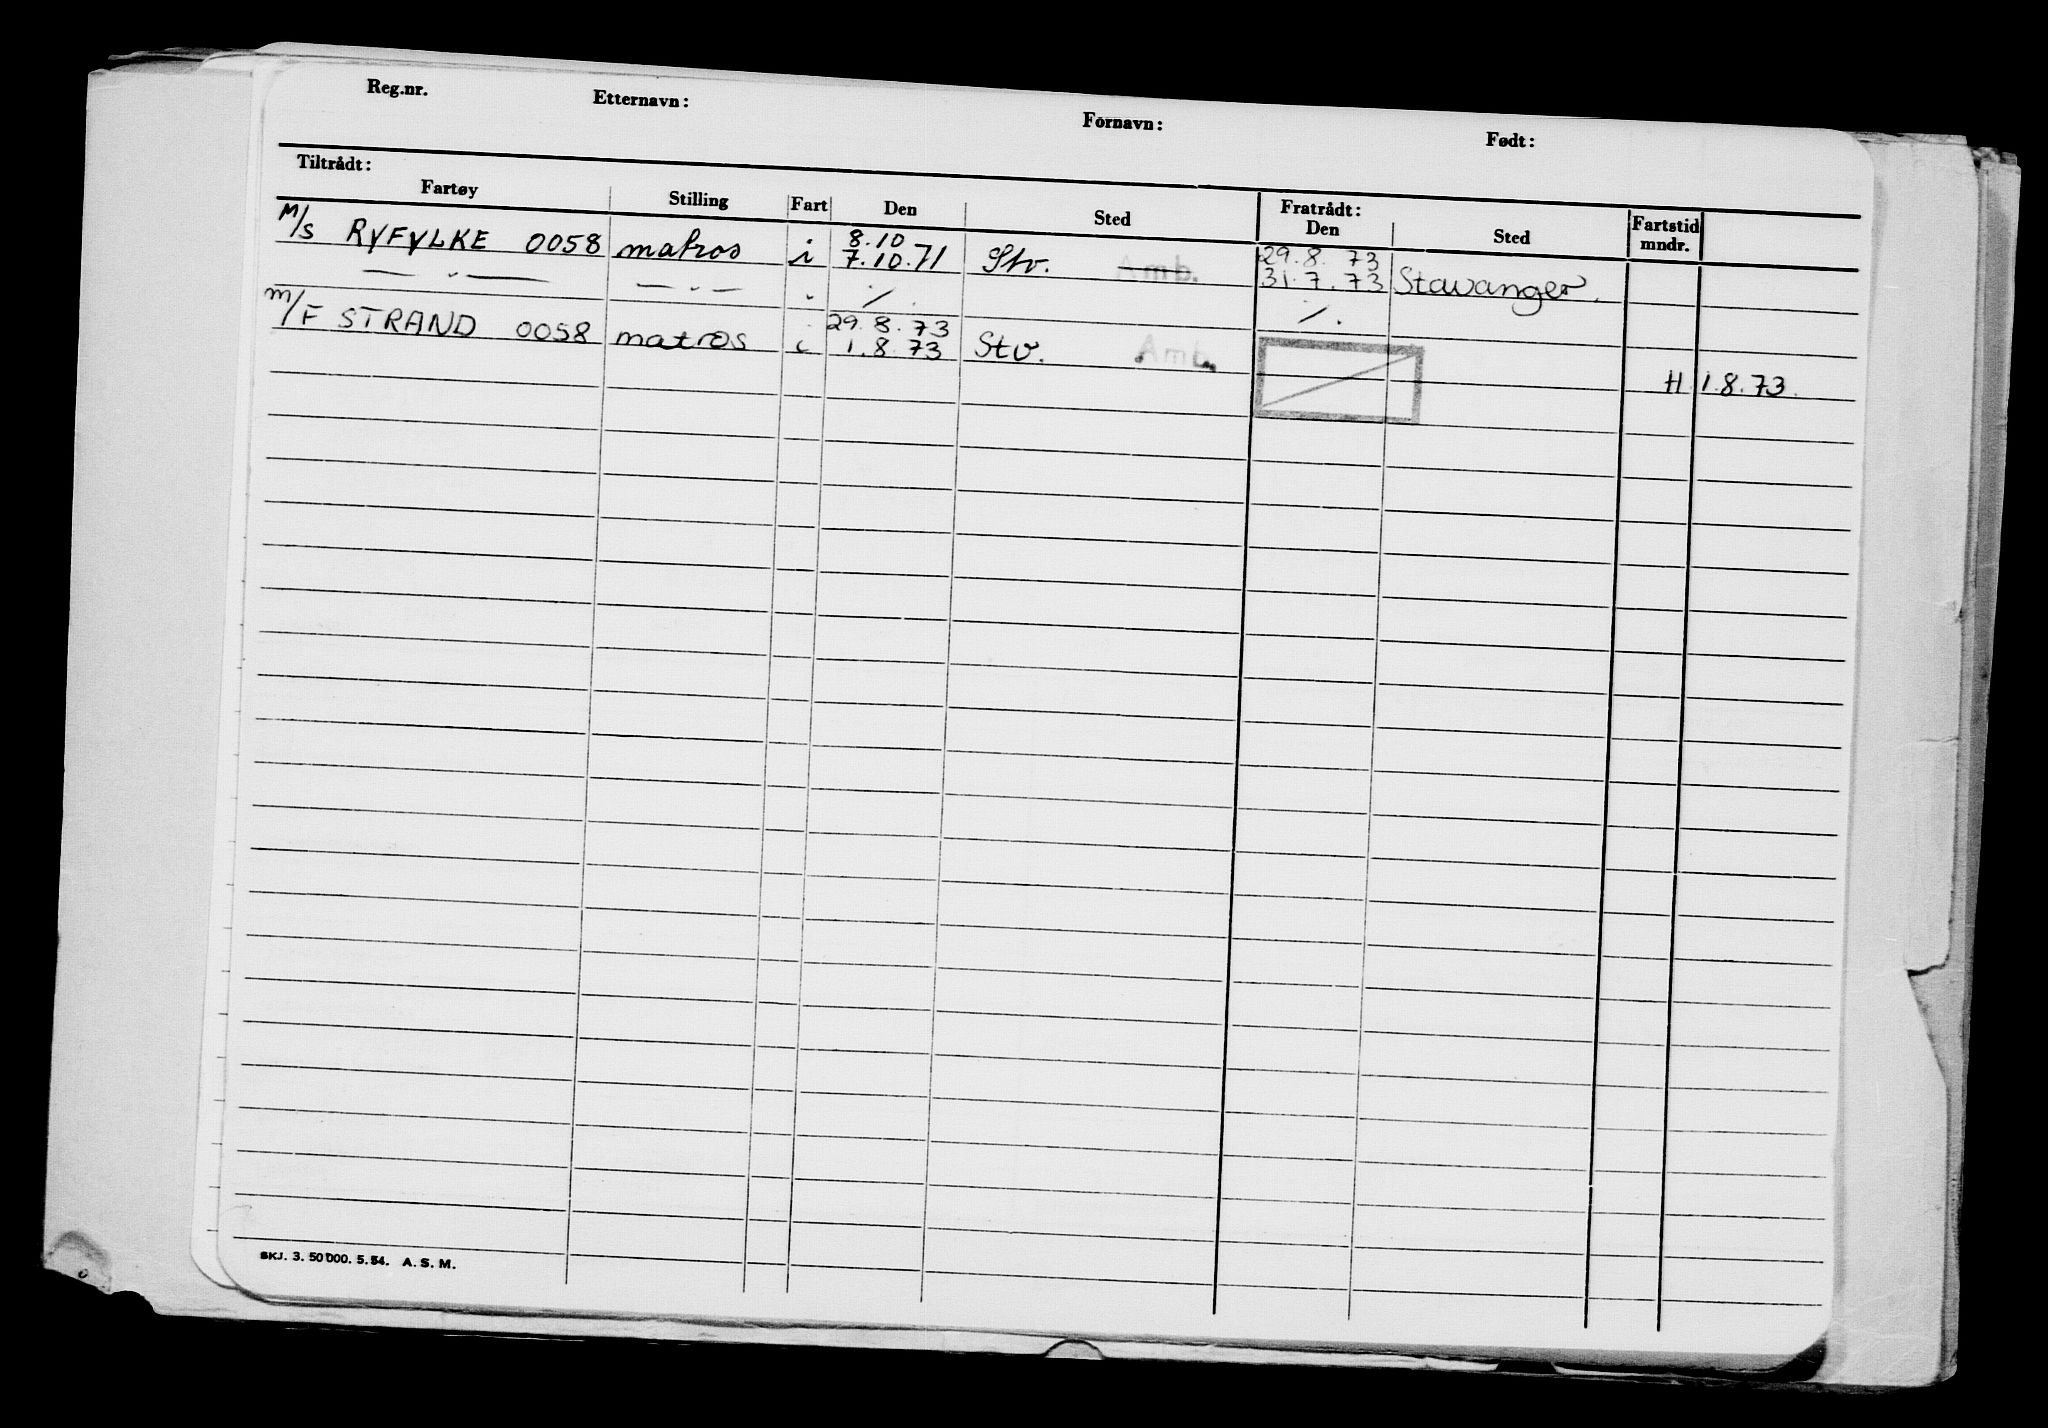 Reg.nr. Etternavn: Fornavn: Født:
Tiltrådt: Fratrådt:
Fartøy Stilling Fart Den Sted Den Sted Fartstid mndr.
8.10 29.8.73
M/S RYFYLKE 0058 matros i 7.10.71 Stv. Amb. 31.7.73 Stavanger.
— " — — " — " ·/. ·/.
29.8.73
m/F STRAND 0058 matros i 1.8.73 Stv. Amb.
H 1.8.73.
SKJ. 3. 50 000. 5. 54. A. S. M.